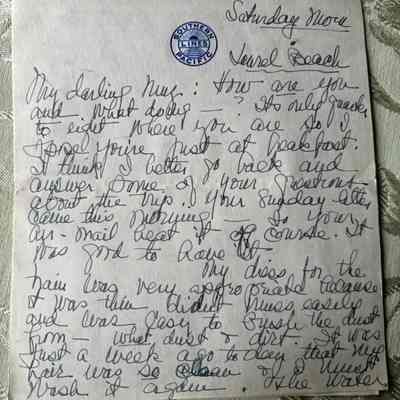 Saturday Morn
SOUTHERN
LINES
PACIFIC
Laurel Beach
My darling Mur: How are you
and what doing — ? It's only quarter
to eight where you are so I
spose you're just at breakfast.
I think I better go back and
answer some of your questions
about the trip. Your Sunday letter
came this morning — so your
air-mail beat it of course. It
was good to have it
My dress for the
train was very appropriate because
it was thin didn't muss easily
and was easy to brush the dust
from — what dust & dirt. It was
just a week ago today that my
hair was so clean & I must
wash it again. The water